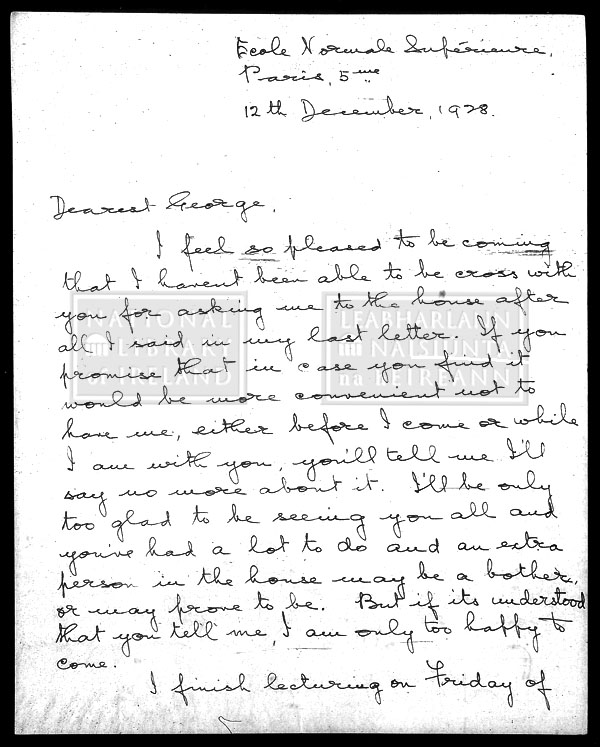 Ecole Normale Supérieure,
Paris, 5me
12th December, 1928.
Dearest George,
I feel so pleased to be coming
that I havent been able to be cross with
you for asking me to the house after
all I said in my last letter. If you
promise that in case you find it
would be more convenient not to
have me, either before I come or while
I am with you, you'll tell me I'll
say no more about it. I'll be only
too glad to be seeing you all and
you've had a lot to do and an extra
person in the house may be a bother,
or may prove to be. But if its understood
that you tell me, I am only too happy to
come.
I finish lecturing on Friday of
NATIONAL
LIBRARY
OF IRELAND
LEABHARLANN
NÁISIÚNTA
na hÉIREANN